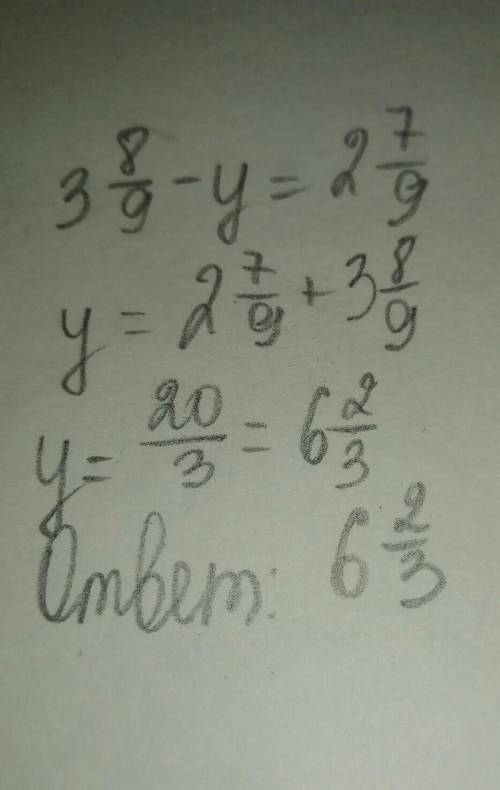 3 8/9 - y = 2 7/9
y = 2 7/9 + 3 8/9
y = 20/3 = 6 2/3
Ответ: 6 2/3